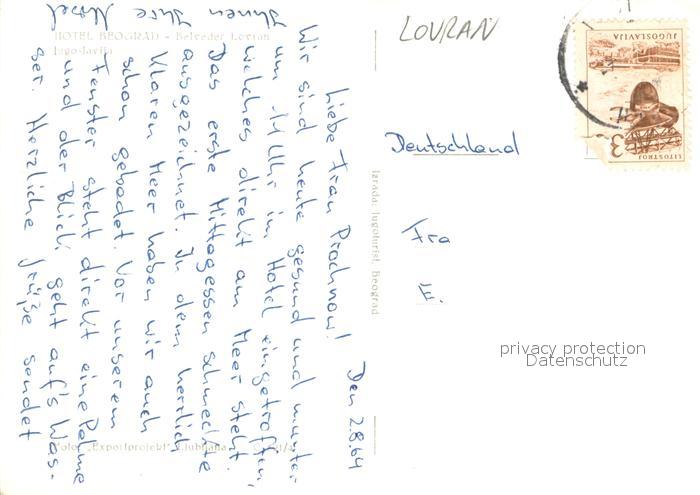 LOVRAN
HOTEL BEOGRAD - Belveder Lovran
Jugoslavija
Den 2.8.64
Liebe Frau Prochnow!
Wir sind heute gesund und munter
um 14 Uhr im Hotel eingetroffen,
welches direkt am Meer steht.
Das erste Mittagessen schmeckte
ausgezeichnet. In dem herrlich
klaren Meer haben wir auch
schon gebadet. Vor unserem
Fenster steht direkt eine Palme
und der Blick geht auf's Was-
ser. Herzliche Grüße sendet
Ihnen Ihre
Foto: „Exportprojekt" Ljubljana
Izrada: Jugoturist, Beograd
Deutschland
Fra
E.
JUGOSLAVIJA
LITOSTROJ
3
privacy protection
Datenschutz